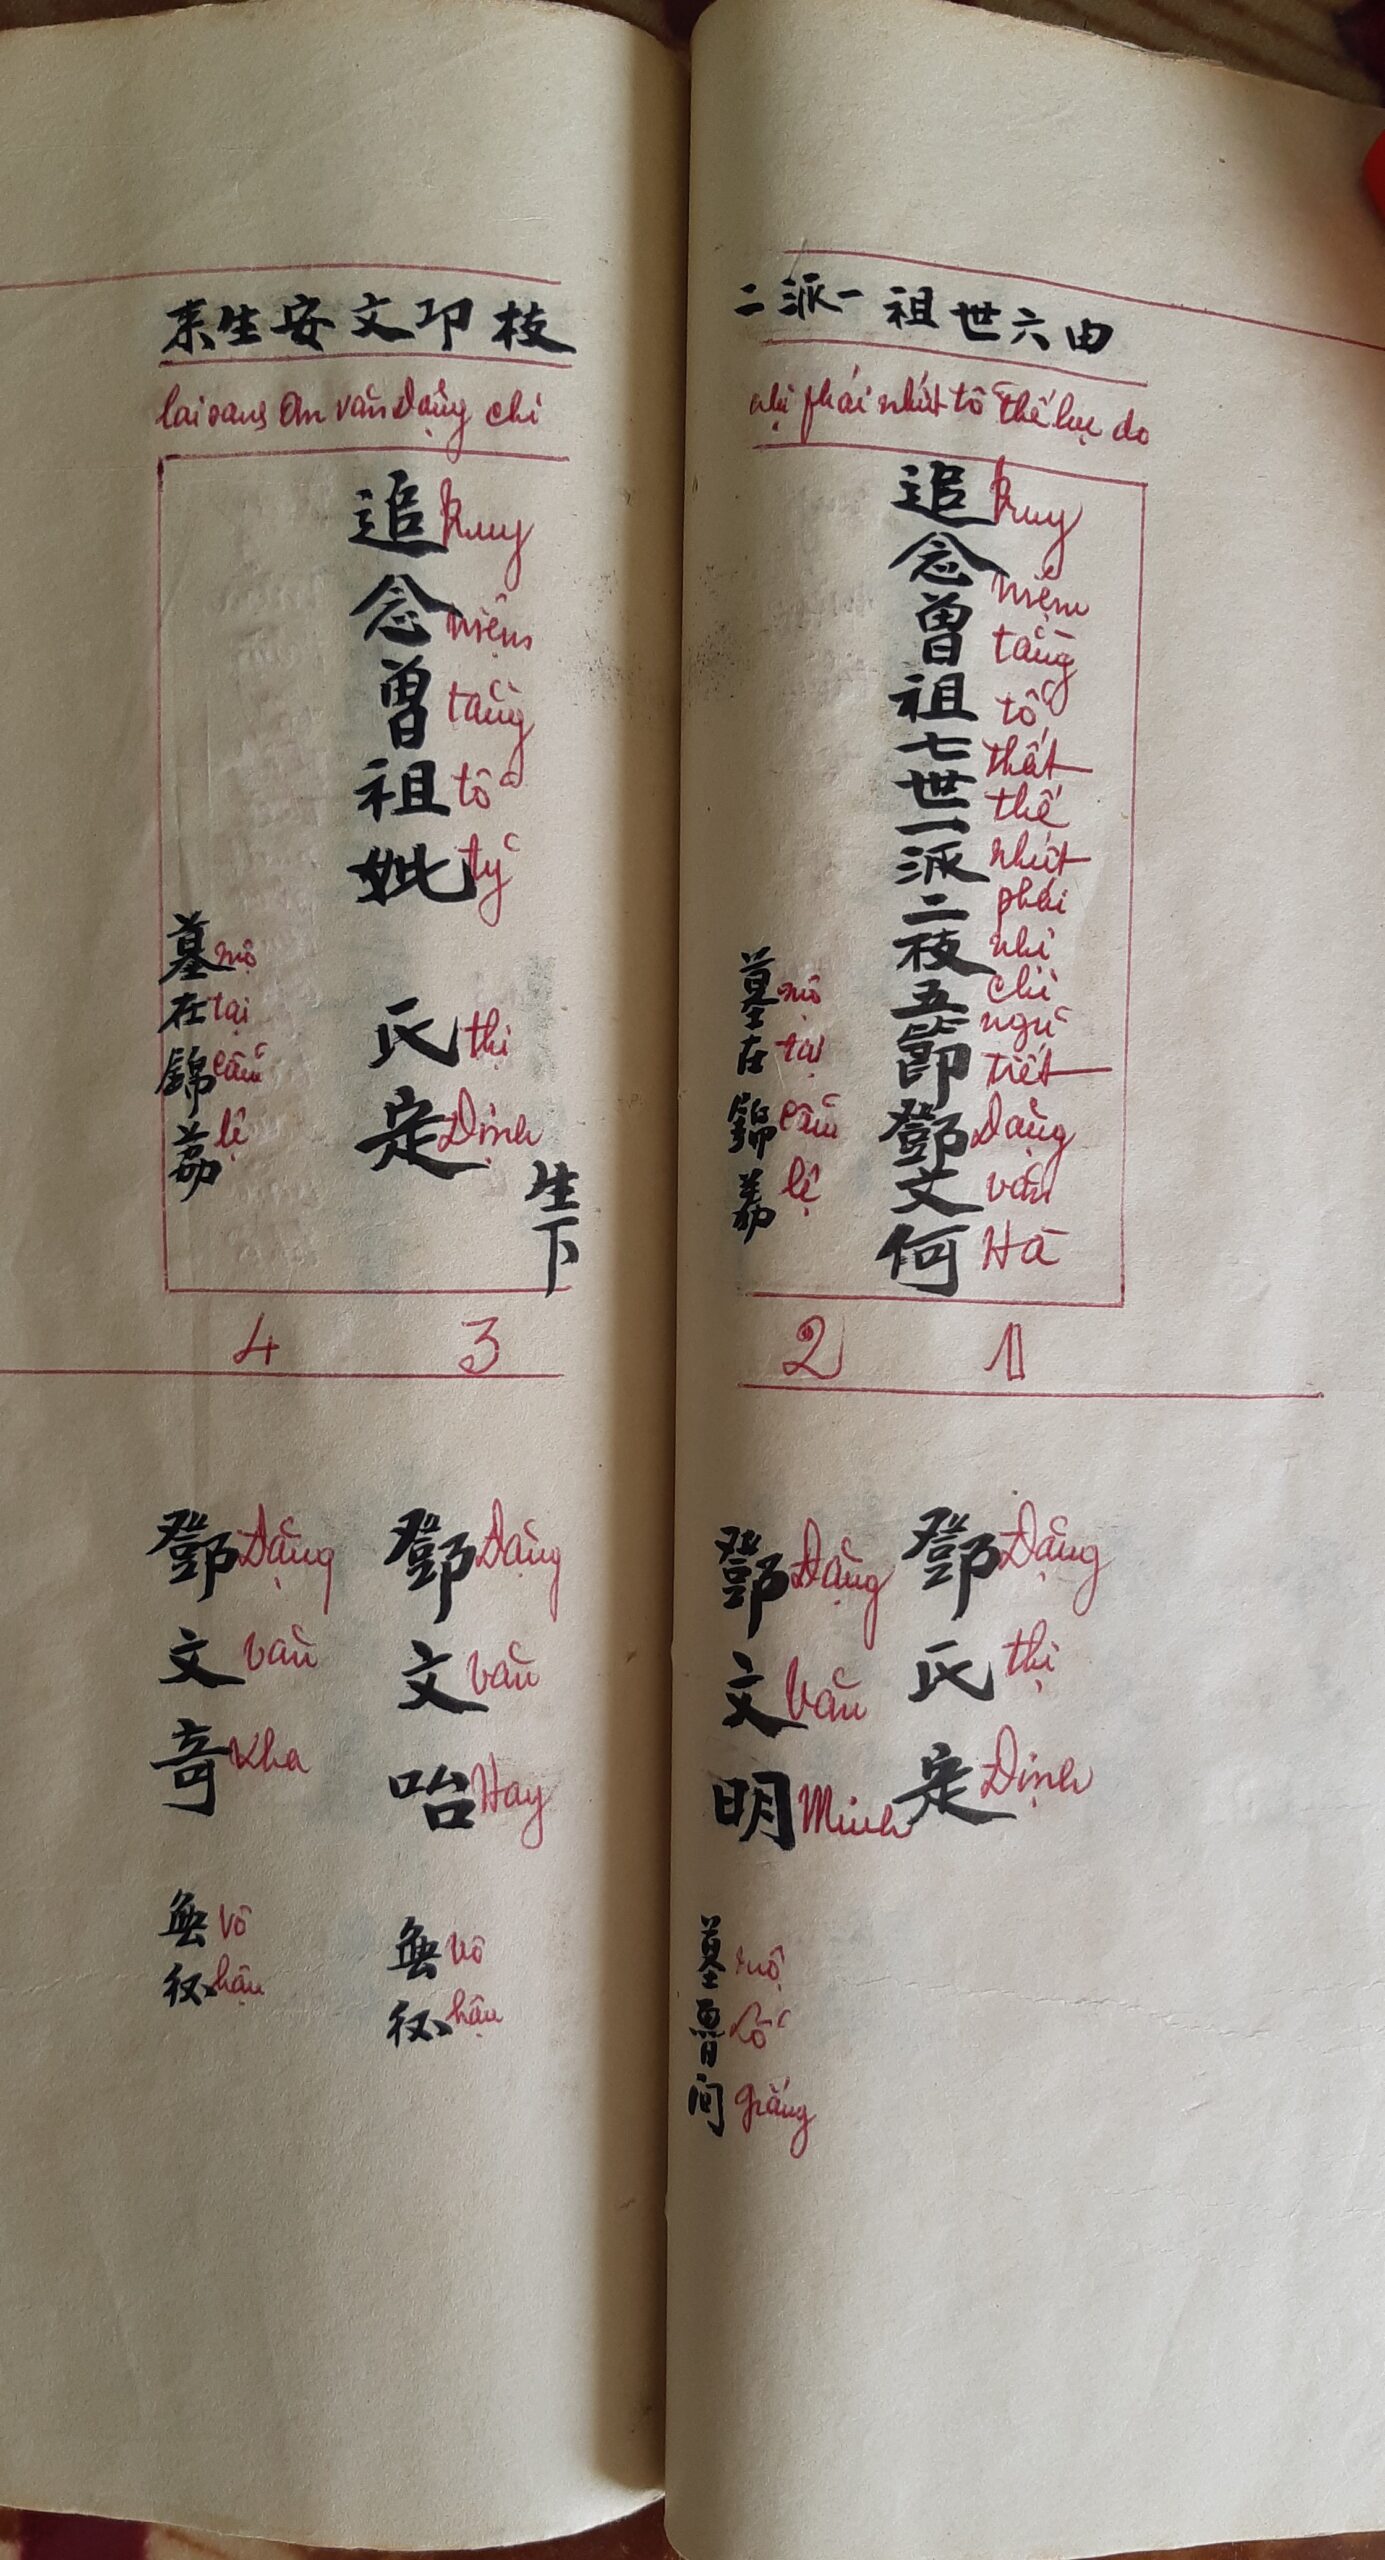 由六世祖一派二
do lục thế tổ nhứt phái nhị
枝卬文安生来
chi Đặng văn An sang lai
追念曾祖七世一派二枝五節鄧文何
Truy niệm tằng tổ thất thế nhứt phái nhị chi ngũ tiết Đặng văn Hà
墓在錦荔
mộ tại Cẩm lệ
追念曾祖妣 氏定
Truy niệm tằng tổ tỷ thị Định
生下
墓在錦荔
mộ tại Cẩm lệ
1
2
3
4
鄧氏定
Đặng thị Định
鄧文明
Đặng văn Minh
墓
mộ
giáng
鄧文咍
Đặng văn Hay
無後
vô hậu
鄧文奇
Đặng văn Kha
無後
vô hậu